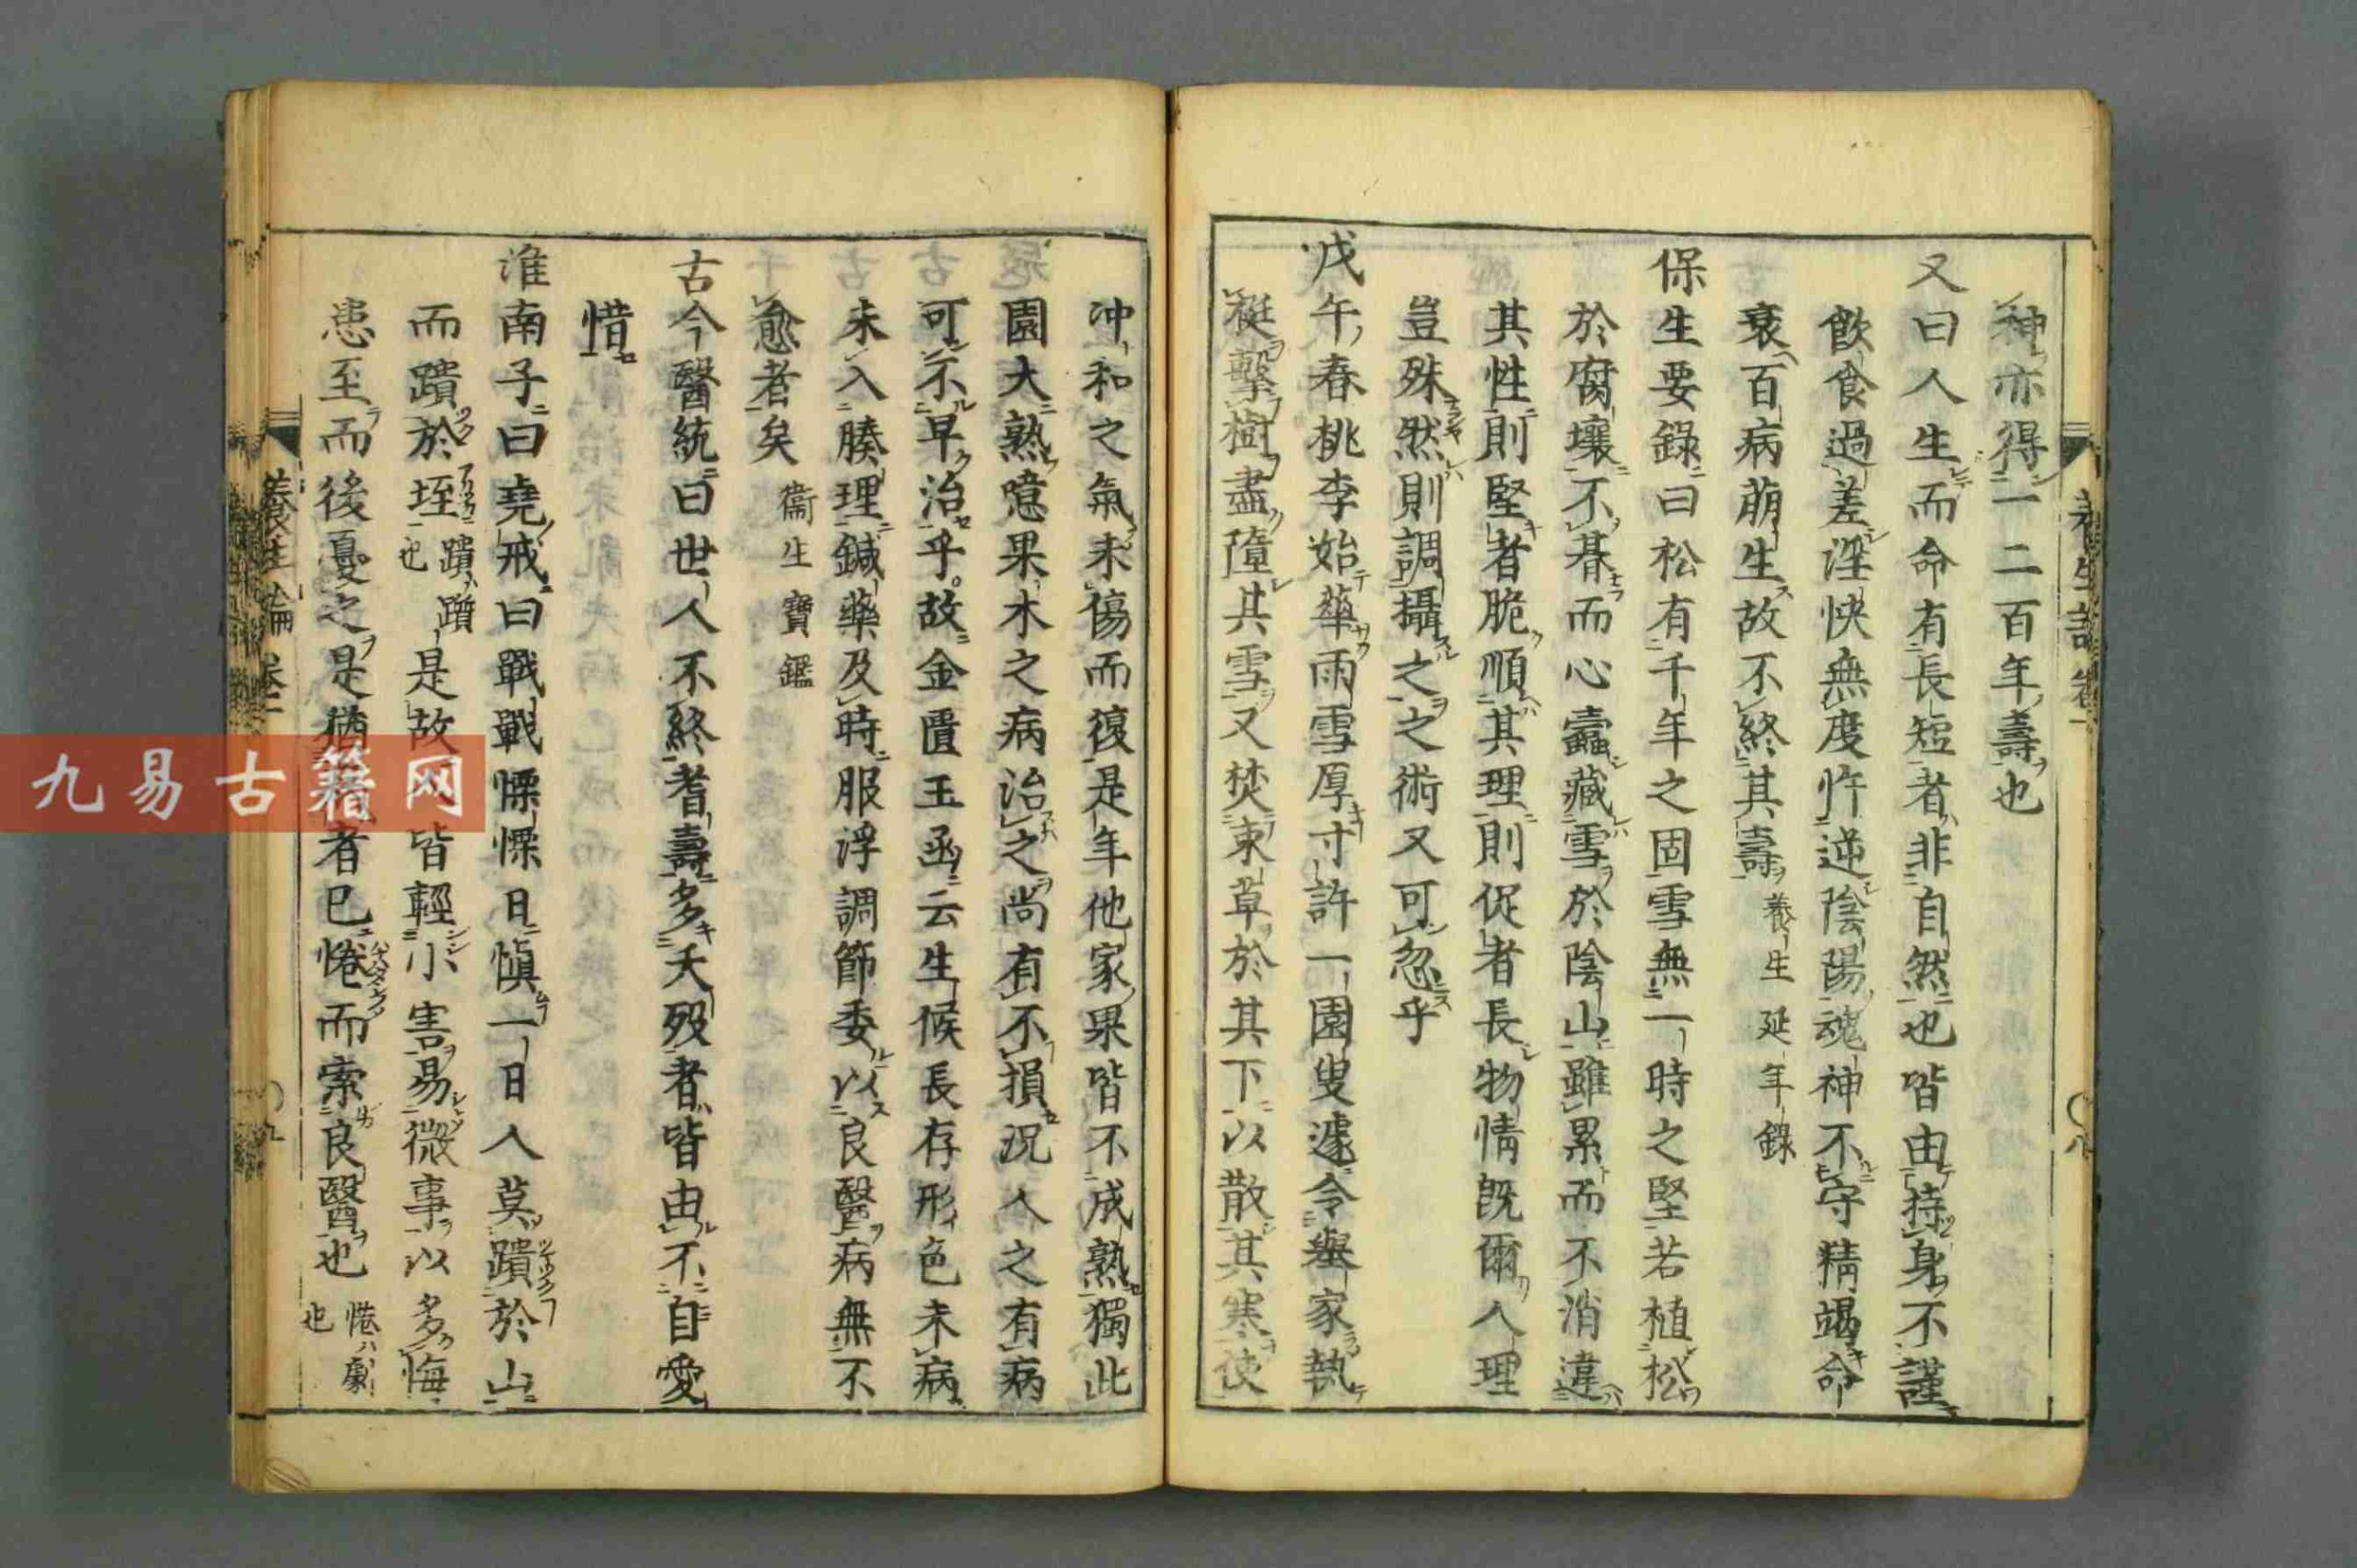 神亦得一二百年壽也
又曰人生而命有長短者非自然也皆由持身不謹
飲食過差淫怏無度忤逆陰陽魂神不守精竭命
衰百病萠生故不終其壽 養生延年錄
保生要錄曰松有千年之固雪無一時之堅若植松
於腐壤不朞而心蠹藏雪於陰山雖累而不消違
其性則堅者脆順其理則促者長物情既爾人理
豈殊然則調攝之之術又可忽乎
戊午春桃李始華雨雪厚寸許一園叟遽令舉家執
梃擊樹盡墮其雪又焚束草於其下以散其寒使
養生論 卷一
〇八
冲和之氣未傷而復是年他家果皆不成熟獨此
園大熟噫果木之病治之尚有不損況人之有病
可不早治乎故金匱玉函云生候長存形色未病
未入腠理鍼藥及時服浮調節委以良醫病無不
愈者矣 衞生寶鑑
古今醫統曰世人不終耆壽多夭歿者皆由不自愛
惜
淮南子曰堯戒曰戰戰慄慄日愼一日人莫蹪於山
而蹪於垤 蹪ハ躓也 是故人皆輕小害易微事以多悔
患至而後憂之是猶病者已惓而索良醫也 惓ハ劇也
養生論 卷一
〇九
九易古籍网